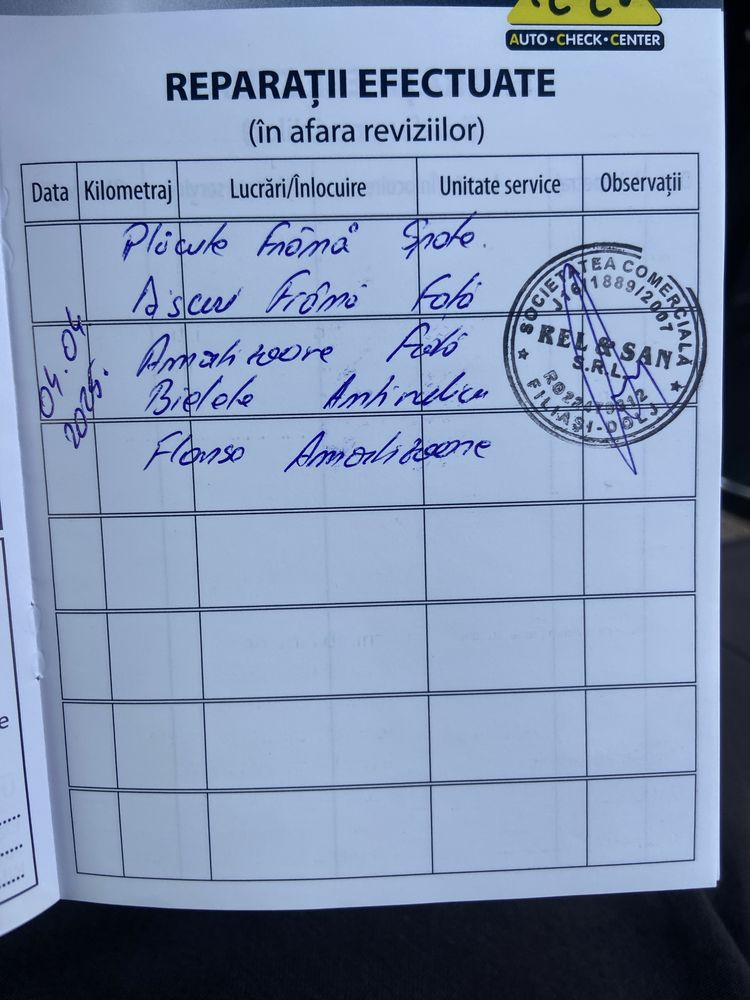 AUTO • CHECK • CENTER
REPARAȚII EFECTUATE
(în afara reviziilor)
Data Kilometraj Lucrări/Înlocuire Unitate service Observații
Plăcute Frână Spate.
Discuri Frână Față
04.04
2025.
Amortizoare Față
Bielete Antiruliu
Flansa Amortizoare
SOCIETATEA COMERCIALĂ
J16/1889/2007
REL & SAN
S.R.L.
FILIAȘI-DOLJ
e